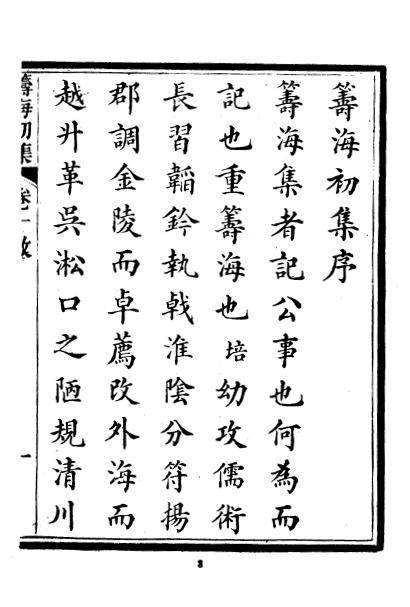 籌海初集序
籌海集者記公事也何為而
記也重籌海也培幼攻儒術
長習韜鈐執戟淮陰分符揚
郡調金陵而卓薦改外海而
越升革吳淞口之陋規清川
籌海初集
卷一
敘
一
3